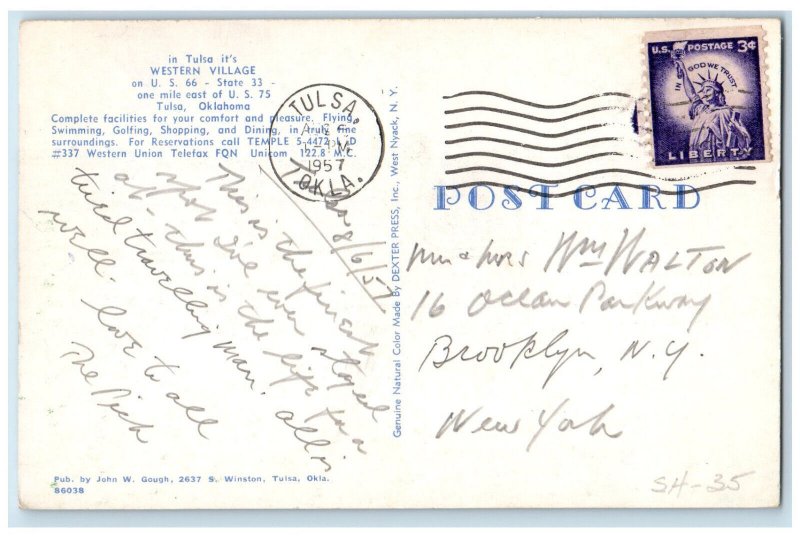 in Tulsa it's
WESTERN VILLAGE
on U. S. 66 - State 33 -
one mile east of U. S. 75
Tulsa, Oklahoma
Complete facilities for your comfort and pleasure. Flying,
Swimming, Golfing, Shopping, and Dining, in truly fine
surroundings. For Reservations call TEMPLE 5-4472 LD
#337 Western Union Telefax FQN Unicom 122.8 M.C.
8/6/57
This is the finest
spot I've ever stayed
at - this is the life for a
tired travelling man. All is
well. Love to all
The Rich
Pub. by John W. Gough, 2637 S. Winston, Tulsa, Okla.
86038
Genuine Natural Color Made By DEXTER PRESS, Inc., West Nyack, N. Y.
TULSA,
PM
1957
OKLA.
U.S. POSTAGE 3¢
IN GOD WE TRUST
LIBERTY
POST CARD
Mr & Mrs Wm WALTON
16 Ocean Parkway
Brooklyn, N.Y.
New York
SH-35